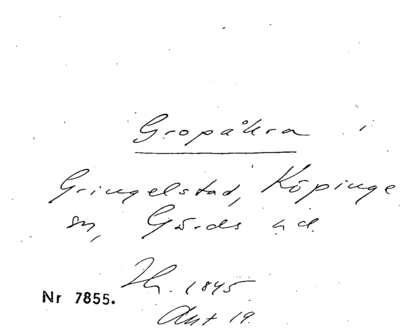 Gropåkra i
Gringelstad, Köpinge
sn, Gärds hd.
Th. 1845
Nr 7855.
Akt 19.